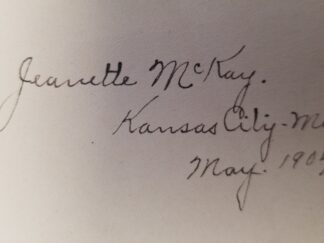 Jeanette McKay.
Kansas City-Mo
May. 190